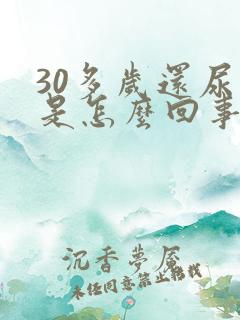 30多歲還尿
是怎麼回事
沉香夢屋
未经同意禁止转载